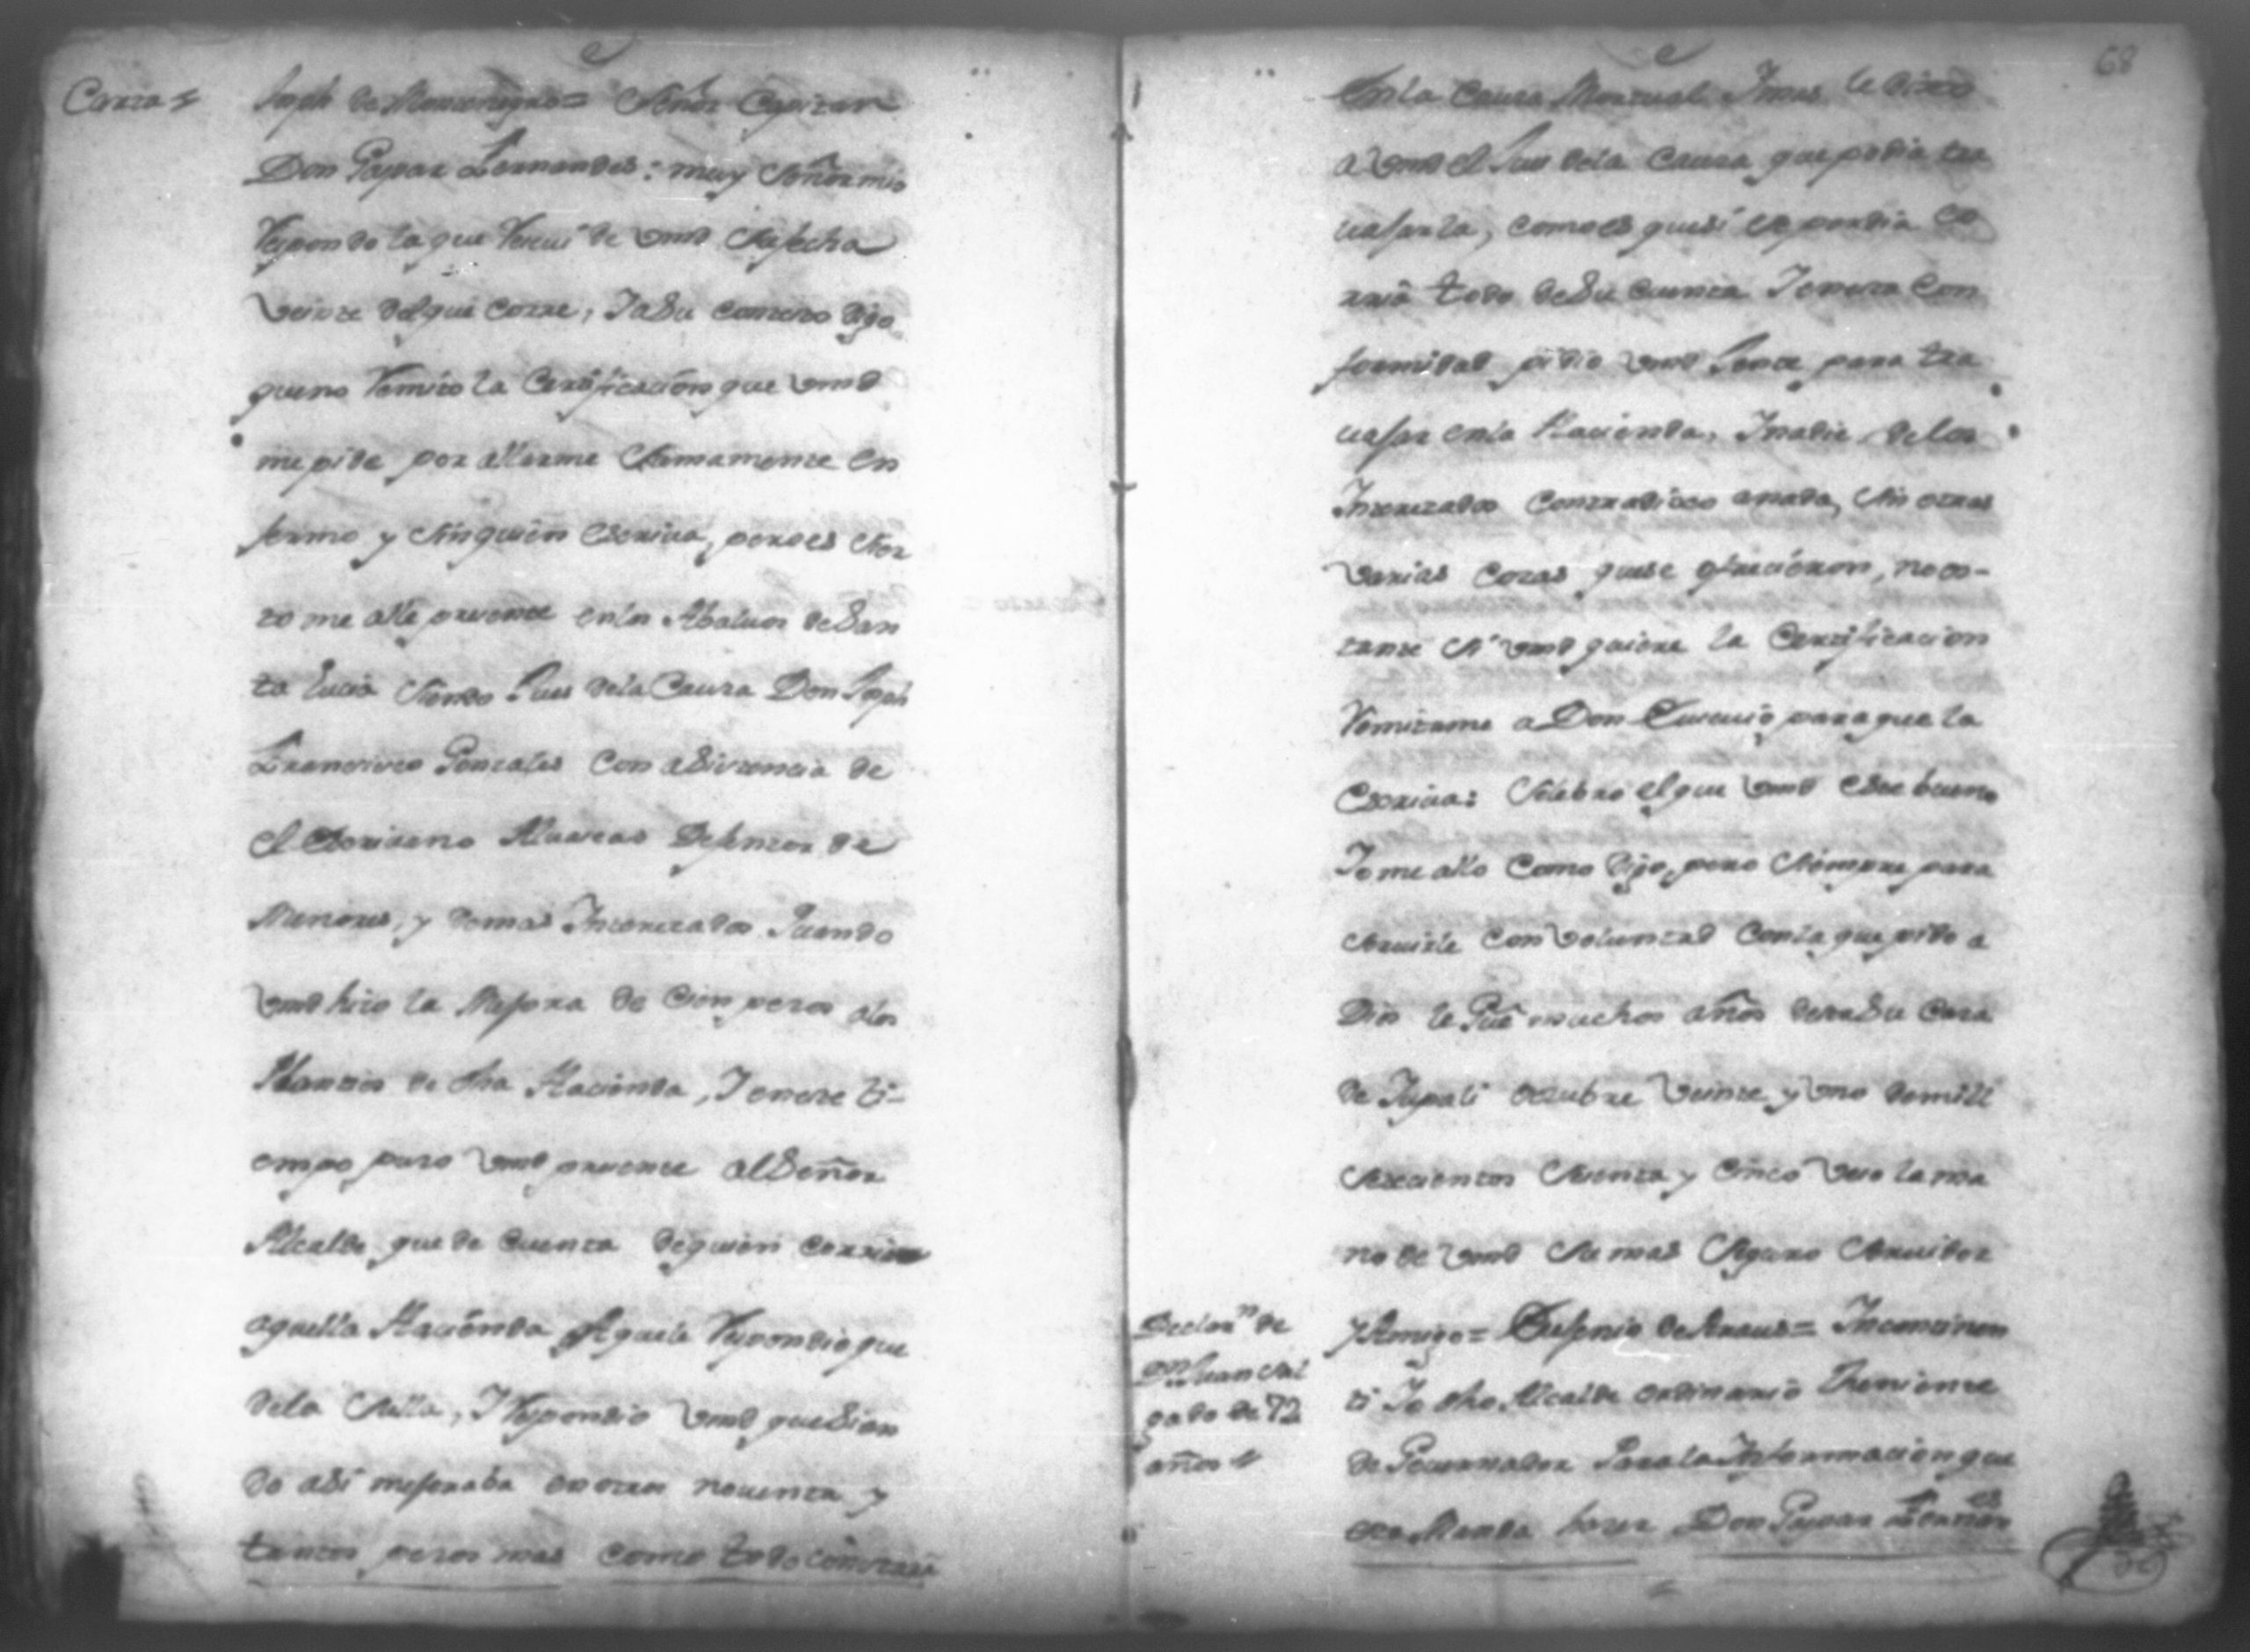 Carta
Joseph de Montenegro = Señor Capitan
Don Gaspar Fernandes: muy Señor mio
Respondo la que Receui de vmd su fecha
veinte del que corre, Y a Su conteno digo
que no Remito la Certificacion que vmd
me pide por allarme Sumamente en
fermo y sin quien escriua, pero es sier
to me alle presente en los Abaluos de San
ta lucia siendo Jues de la Causa Don Joseph
Francisco Gonzales con asistencia de
el Escriuano Defensor de
Menores, y demas Interezados. Quando
vmd hizo la Mejora de cien pesos a los
de dha Hacienda, Y en este ti-
empo puso vmd presente al Señor
Alcalde, que de cuenta de quien corria
aquella Hacienda A que le Respondio que
de la Suya, Y Respondio vmd que Sien
do asi mejoraba en otros nouenta y
tantos pesos mas como todo constara
68
En la Causa Mortual. Y mas le dixo
a vmd el Jues de la Causa que podia tra
uajarla, como es que si se perdia co
rria todo de Su cuenta Y en esta con
formidad pidio vmd Jente para tra
uajar en la Hacienda, Y nadie de los
Interezados contradixo a nada, sin otras
varias cozas que se ofrecieron, no os-
tante si vmd quiere la Certificacion
Remitame a Don para que la
Escriua: Selebro el que vmd este bueno
Yo me allo como digo, pero siempre para
seruirle con voluntad con la que pido a
Dios le Gue muchos años de esta Su casa
de octubre veinte y uno de mill
setecientos sesenta y cinco veso la ma
no de vmd su mas seguro seruidor
y Amigo = Eusenio de Araus = Incontinen
ti Yo dho Alcalde ordinario Theniente
de Gouernador Para la Informacion que
esta Manda hazer Don Gaspar Fernes
Declarn de
Dn Juan Sal
gado de 72
años